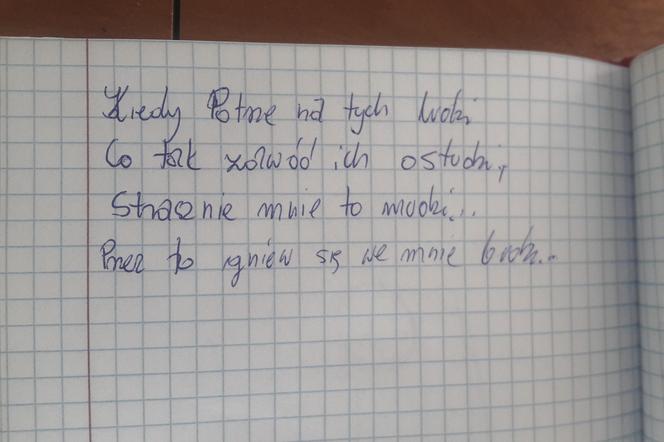 Kiedy Patrze na tych ludzi
Co tak zawód ich ostudzi,
Strasznie mnie to nudzi...
Przez to gniew się we mnie budzi...